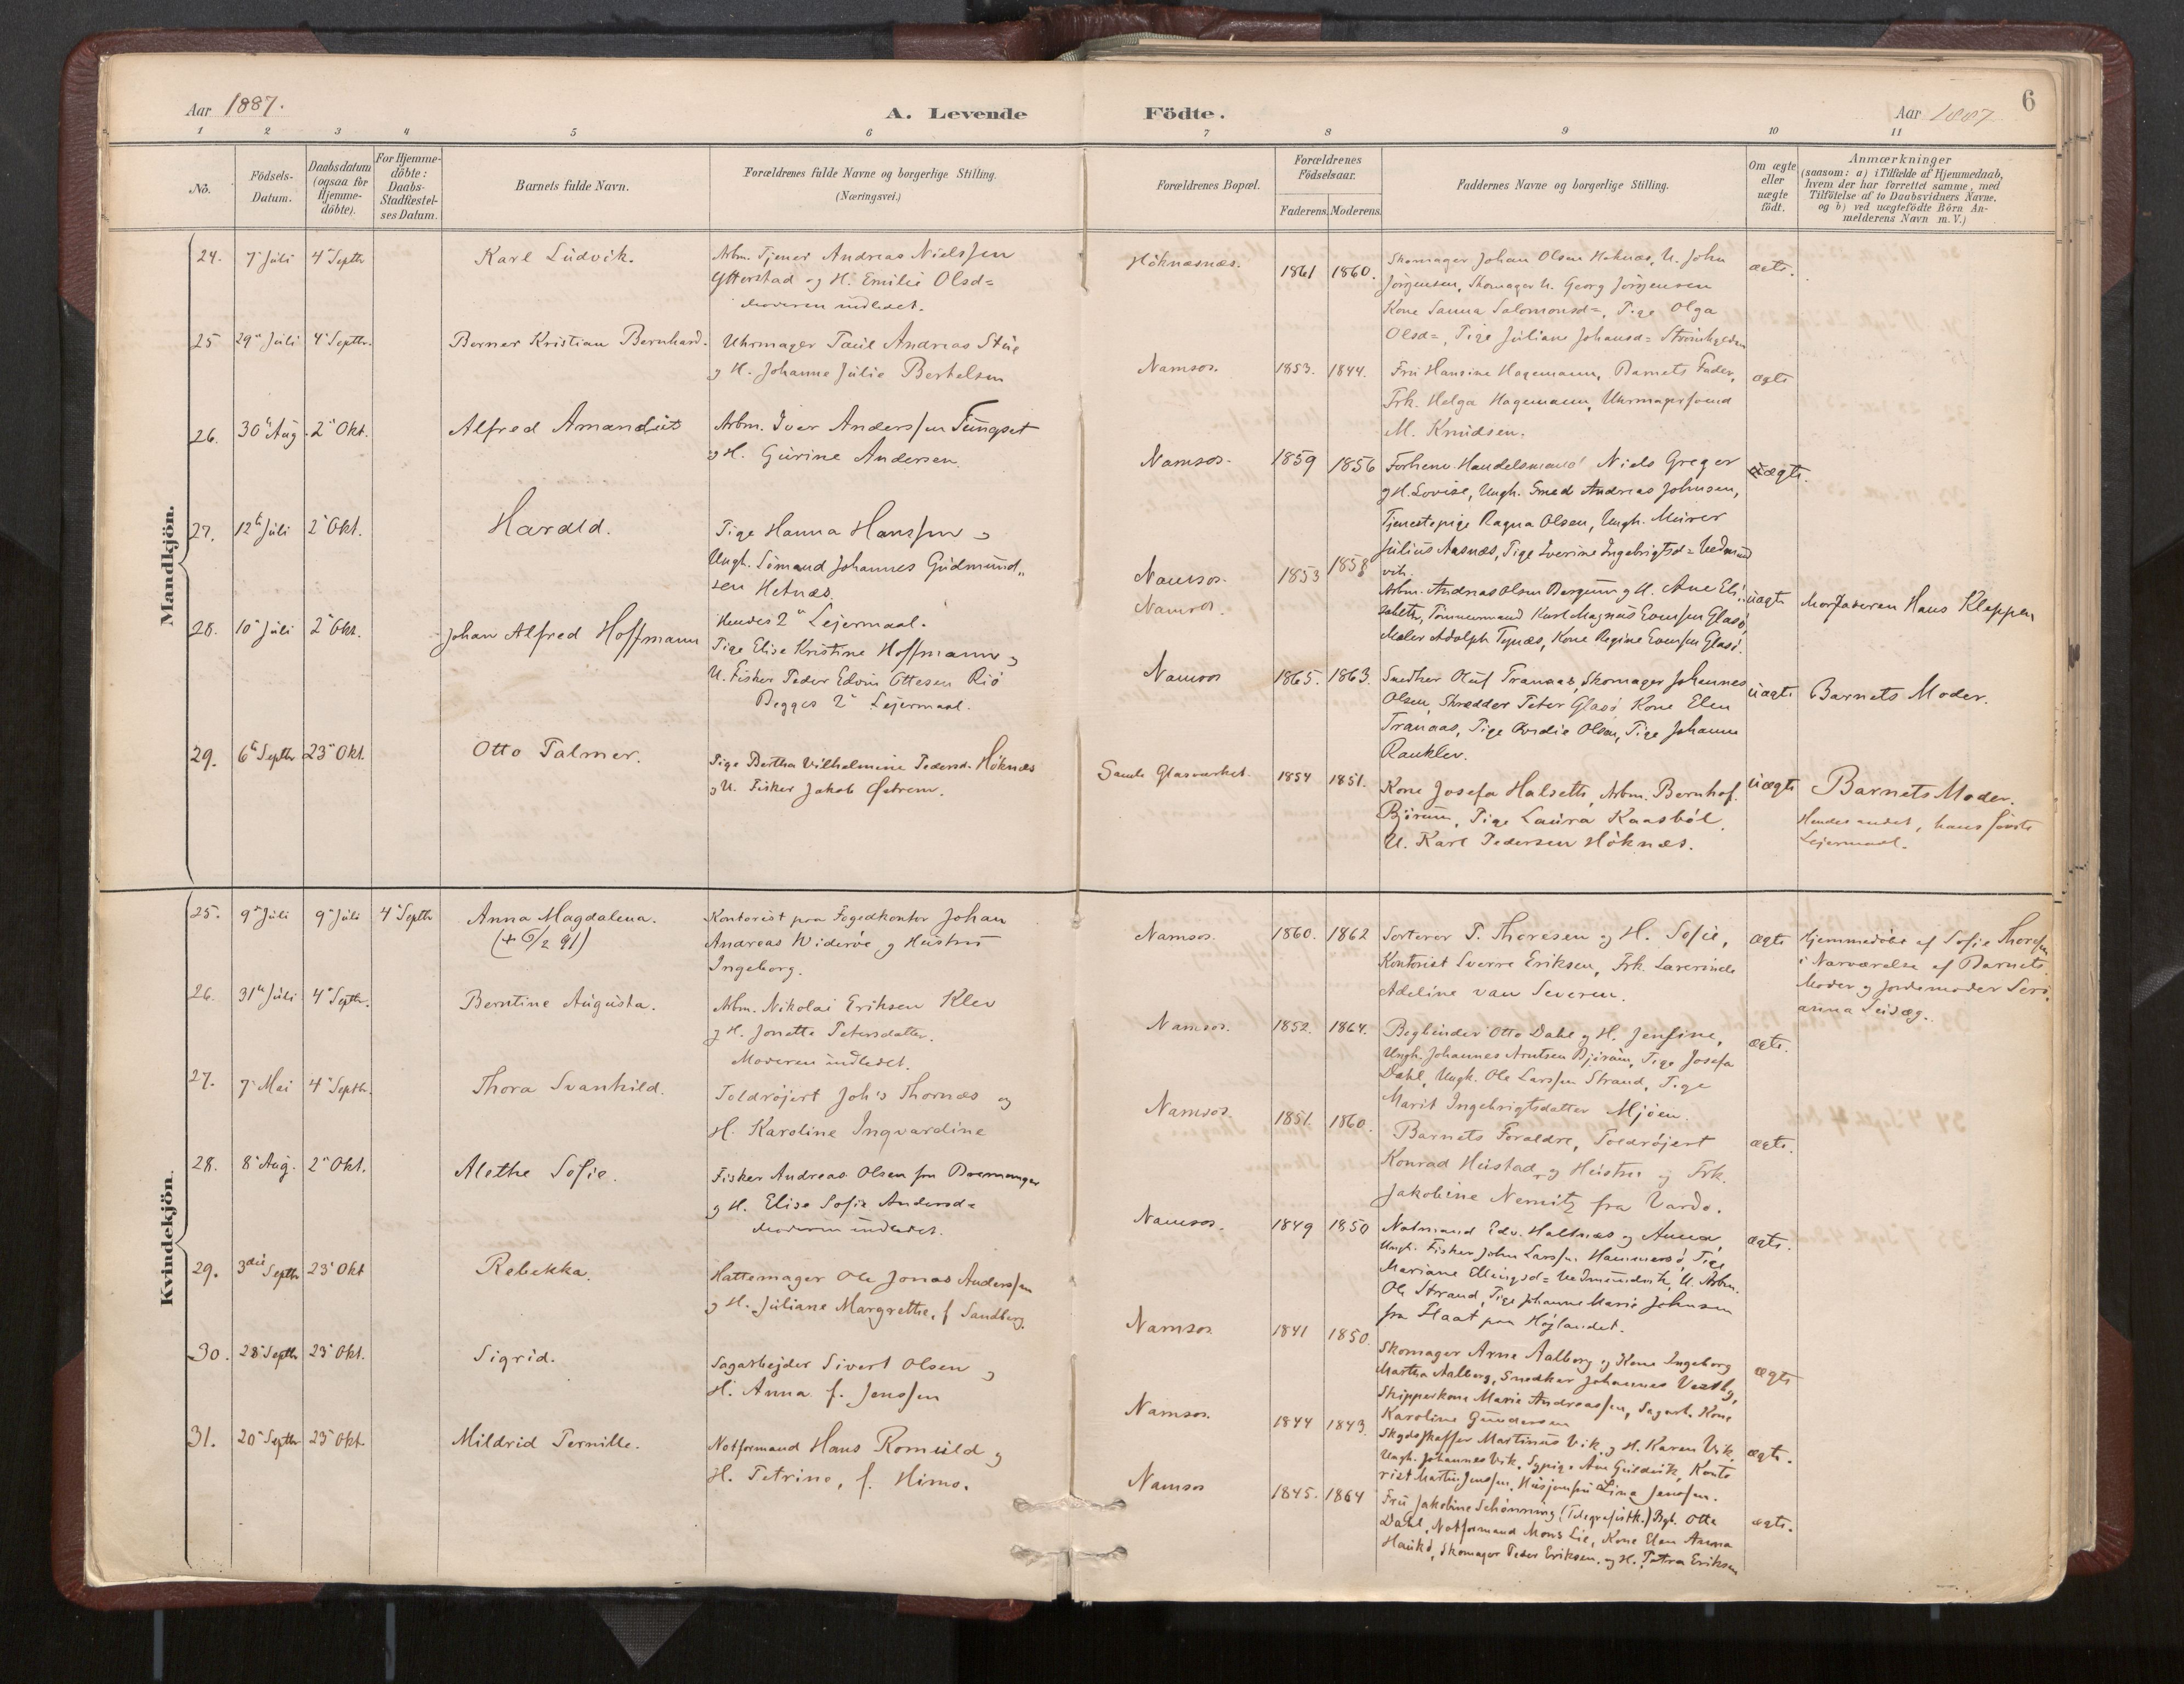 Aar 1887.
A. Levende
Födte.
Aar 1887
6
1 2 3 4 5 6 7 8 9 10 11
No.
Födsels-
Datum.
Daabsdatum
(ogsaa for
Hjemme-
döbte).
For Hjemme-
döbte:
Daabs-
Stadfæstel-
ses Datum.
Barnets fulde Navn.
Forældrenes fulde Navne og borgerlige Stilling.
(Næringsvei.)
Forældrenes Bopæl.
Forældrenes
Födselsaar.
Faderens. Moderens.
Faddernes Navne og borgerlige Stilling.
Om ægte
eller
uægte
födt.
Anmærkninger
(saasom: a) i Tilfælde af Hjemmedaab,
hvem der har forrettet samme, med
Tilföielse af to Daabsvidners Navne.
og b) ved uægtefödte Börn An-
melderens Navn m.V.)
Mandkjön.
24. 7 Juli 4 Septbr
Karl Ludvik.
Arbm. Tjener Andreas Nielssen
Ytterstad og H. Emilie Olsd=
Moderen indledet.
Höknæsnæs.
1861 1860.
Skomager Johan Olsen Höknæs, U. John
Jörgensen, Skomager U. Georg Jörgensen
Kone Sanna Salomonsd=, Pige Olga
Olsd=, Pige Juliane Johansd=
ægte.
25 29 Juli 4 Septbr.
Berner Kristian Bernhard.
Uhrmager Paul Andreas Stue
og H. Johanne Julie Berthelsen
Namsos. 1853. 1844.
Fru Hansine Hagemann, Barnets Fader,
Frk. Helga Hagemann, Uhrmagersvend
M. Knudsen.
ægte
26. 30 Aug. 2 Okt.
Alfred Amandus
Arbm. Iver Anderssen Fungset
og H. Gurine Andersen.
Namsos. 1859 1856
Forhenv. Handelsmand Niels Greger
og H. Lovise, Ungk. Smed Andreas Johnsen,
Tjenestepige Ragna Olsen, Ungk. Murer
Julius Aasnæs, Pige Iverine Ingebrigtsd= Vedmund
vik.
ægte.
27. 12 Juli 2 Okt.
Harald.
Pige Hanna Hanssen og
Ungk. Sömand Johannes Gudmund„
sen Hetnæs.
Hendes 2 Lejermaal.
Namsos.
Namsos.
1853 1858
Arbm. Andreas Olsen Bergum og H. Ane Eli„
zabeth, Tömmermand Karl Magnus Evensen Glasö,
Maler Adolph Tynæs, Kone Regine Evensen Glasö.
uægte
Morfaderen Hans Kleppen
28. 10 Juli 2 Okt.
Johan Alfred Hoffmann
Pige Elise Kristine Hoffmann og
U. Fisker Peder Edvin Ottesen Riö
Begges 2 Lejermaal.
Namsos 1865. 1863.
Snedker Oluf Tranaas, Skomager Johannes
Olsen, Skrædder Peter Glasö, Kone Elen
Tranaas, Pige Ovidie Olsen, Pige Johanne
Ranklev.
uægte
Barnets Moder.
29. 6 Septbr 23 Okt.
Otto Palmer.
Pige Bertha Vilhelmine Pedersd. Höknæs
og U. Fisker Jakob Østrem.
Glasværket. 1854 1851.
Kone Josefa Halseth, Arbm. Bernhof.
Björum, Pige Laura Kaasböl,
U. Karl Pedersen Höknæs.
uægte
Barnets Moder.
Hendes andet, hans förste
Lejermaal.
Kvindekjön.
25. 9 Juli 9 Juli 4 Septbr
Anna Magdalena.
(+ 6/2 91)
Kontorist paa Fogedkontor Johan
Andreas Wideröe og Hustru
Ingeborg.
Namsos. 1860. 1862
Sorterer P. Thoresen og H. Sofie,
Kontorist Sverre Eriksen, Frk. Lærerinde
Adeline van Severen.
ægte
Hjemmedöbt af Sofie Thoresen
i Nærværelse af Barnets
Moder og Jordemoder Seri„
anna
26. 31 Juli 4 Septbr.
Berntine Augusta.
Arbm. Nikolai Eriksen Klev
og H. Jonette Petersdatter.
Moderen indledet.
Namsos. 1852. 1864.
Bogbinder Otto Dahl og H. Jensine,
Ungk. Johannes Arntsen Björum, Pige Josefa
Dahl, Ungk. Ole Larssen Strand, Pige
Marit Ingebrigtsdatter Mjöen.
ægte.
27. 7 Mai 4 Septbr.
Thora Svanhild.
Toldröjert Joh's Thornæs og
H. Karoline Ingvardine
Namsos. 1851. 1860.
Barnets Forældre, Toldröjert
Konrad Hustad og Hustru og Frk.
Jakobine Nemitz fra Vardö.
ægte.
28. 8 Aug. 2 Okt.
Alethe Sofie.
Fisker Andreas Olsen fra Bremanger
og H. Elise Sofie Andersd=
Moderen indledet.
Namsos. 1849 1850
Notmand Edv. Haltnæs og Anna,
Ungk. Fisker John Larssen Hammersö, Pige
Mariane Ellingsd= Vedmundvik, U. Arbm.
Ole Strand, Pige Johanne Marie Johnsen
fra Flaat paa Höjlandet.
ægte.
29. 3die Septbr 23 Okt
Rebekka.
Hattemager Ole Jonas Anderssen
og H. Juliane Margrethe, f. Sandberg.
Namsos. 1841 1850.
Skomager Arne Aalberg og Kone Ingeborg
Martha Aalberg, Snedker Johannes Vestby,
Skipperkone Marie Andreassen, Sagarb. Kone
Karoline Gundersen
ægte
30. 28 Septbr 23 Okt.
Sigrid.
Sagarbejder Sivert Olsen og
H. Anna f. Jenssen
Namsos. 1844 1843.
Skydsskaffer Martinus Vik og H. Karen Vik,
Ungk. Johannes Vik, Sypige Ane Guldvik, Konto
rist Martin Jenssen, Husjomfru Lina Jenssen.
ægte.
31. 20 Septbr 23 Okt.
Mildrid Pernille.
Notformand Hans Romuld og
H. Petrine, f. Himo.
Namsos 1845. 1864
Fru Jakobine Schönning (Telegrafistk.) Bgb. Otto
Dahl, Notformand Mons Lie, Kone Elen Anna
Haukö, Skomager Peder Eriksen og H. Petra Eriksen
ægte.